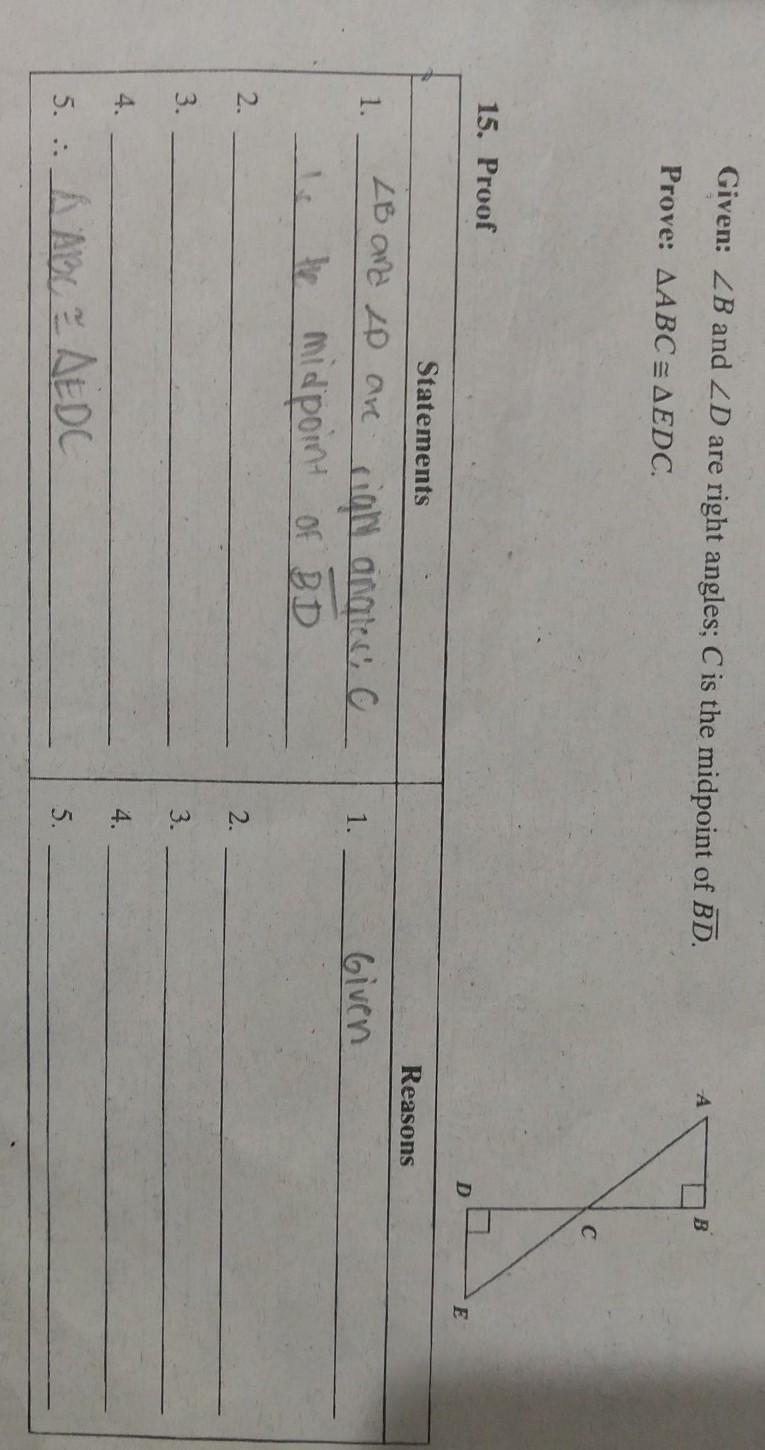 Given: ∠B and ∠D are right angles; C is the midpoint of B̅D̅.
Prove: ΔABC ≅ ΔEDC.
A
B
C
D
E
15. Proof
Statements
Reasons
1. ∠B and ∠D are right angles; C
1. Given
is the midpoint of B̅D̅
2.
2.
3.
3.
4.
4.
5. ∴ Δ ABC ≅ ΔEDC
5.